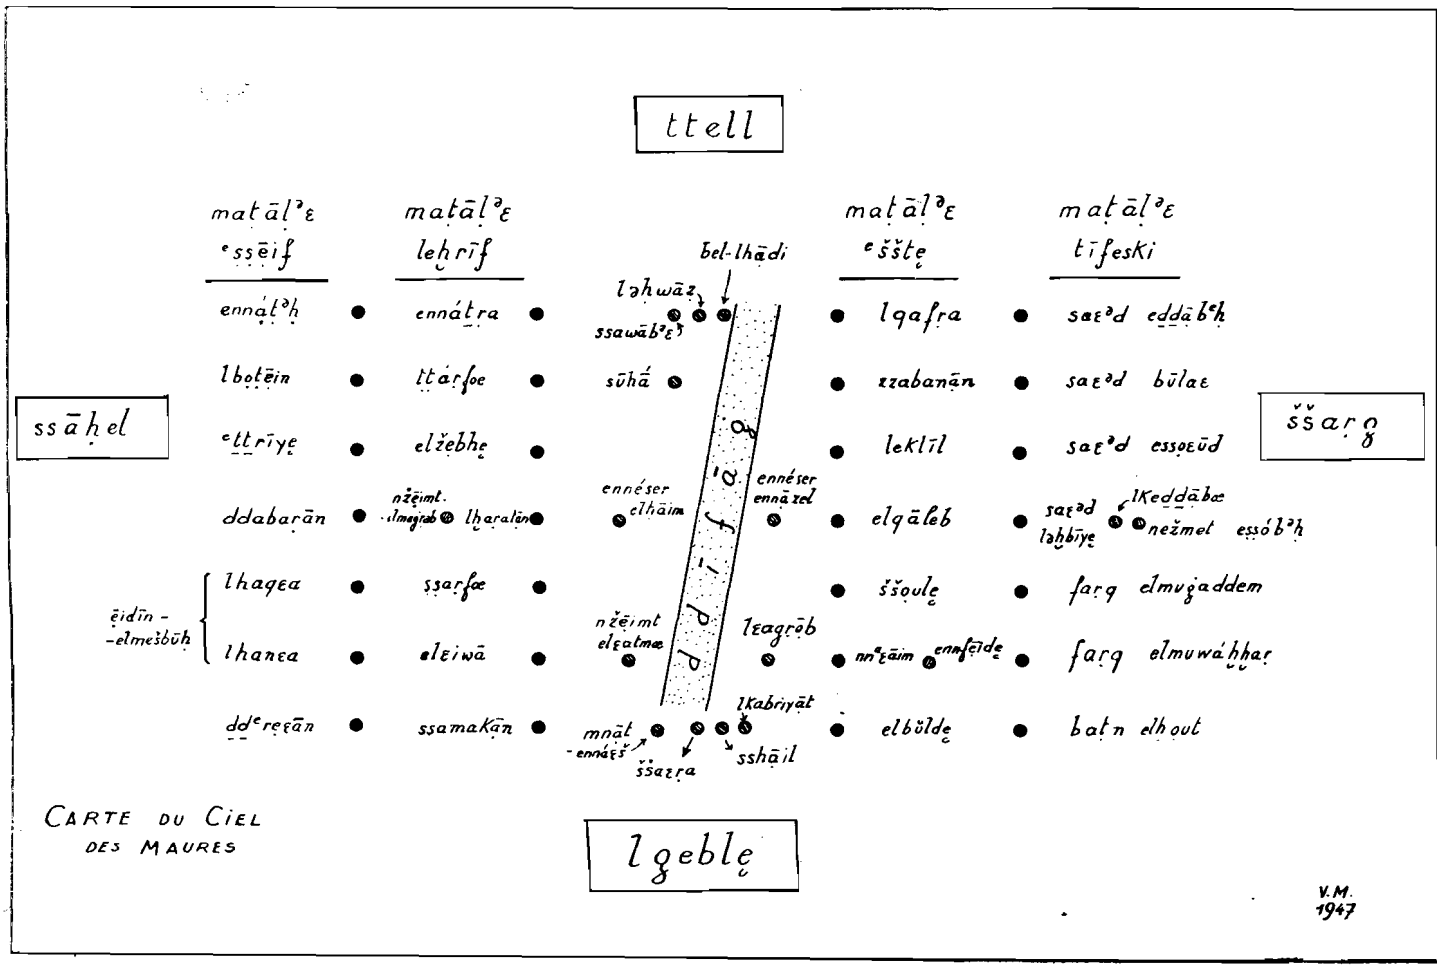 ttell
maṭāḷᵊε
ᵉṣṣēịf
ennáṭᵊḥ
lboṭēịn
ᵉṯṯrīyę
ddabarān
lhaqεa
lhanεa
ḏḏᵉreεān
ēidīn -
-elmešbūḥ
maṭāḷᵊε
leḫrīf
ennáṯra
ṭṭárfœ
elžębhę
nžēịmt.
elmaġrab
lḫaratān
ṣṣarfœ
elεiwā
ssamakān
bel-lhādi
lǝḥwāẓ
ssawābᵊε
sūhā
ennéser
elḥāim
ennéser
ennāzel
ḍḍīfāġ
nžēịmt
elεatmœ
lεagrōb
mnāt
-ennáεš
ššaεṛa
lkabriyāt
sshāịl
maṭāḷᵊε
ᵉššte
lqafṛa
zzabanān
leklīl
elqāleb
ššọule
nnᵃεāim
ennfēịde
elbūlde
maṭāḷᵊε
tīfeski
saεᵊd eḏḏābᵉḥ
saεᵊd būlaε
saεᵊd essoεūd
saεᵊd
lǝḫbīye
lkeḏḏābœ
nežmet eṣṣóbᵊḥ
faṛq elmuġaddem
faṛq elmuwáḫḫaṛ
baṭn elḥout
ssāḥel
ššaṛg
lgeble
CARTE DU CIEL
DES MAURES
V.M.
1947